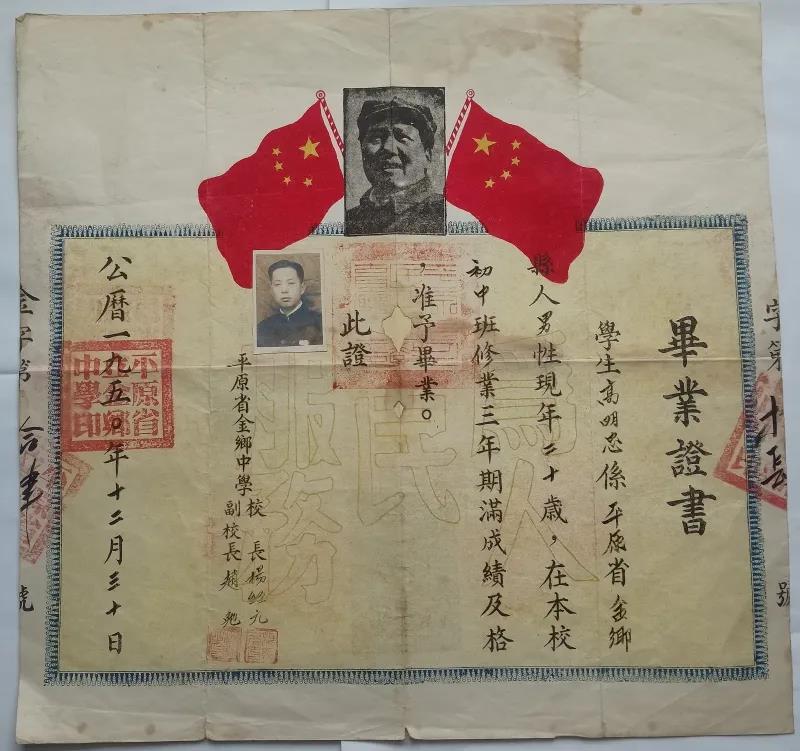 畢業證書
學生高明忠係平原省金鄉
縣人男性現年二十歲，在本校
初中班修業三年期滿成績及格
，准予畢業。
此證
平原省金鄉中學校 校長楊
副校長趙
公曆一九五〇年十二月三十日
平原省金鄉中學印
為人民服務
字第
號
金字第
號